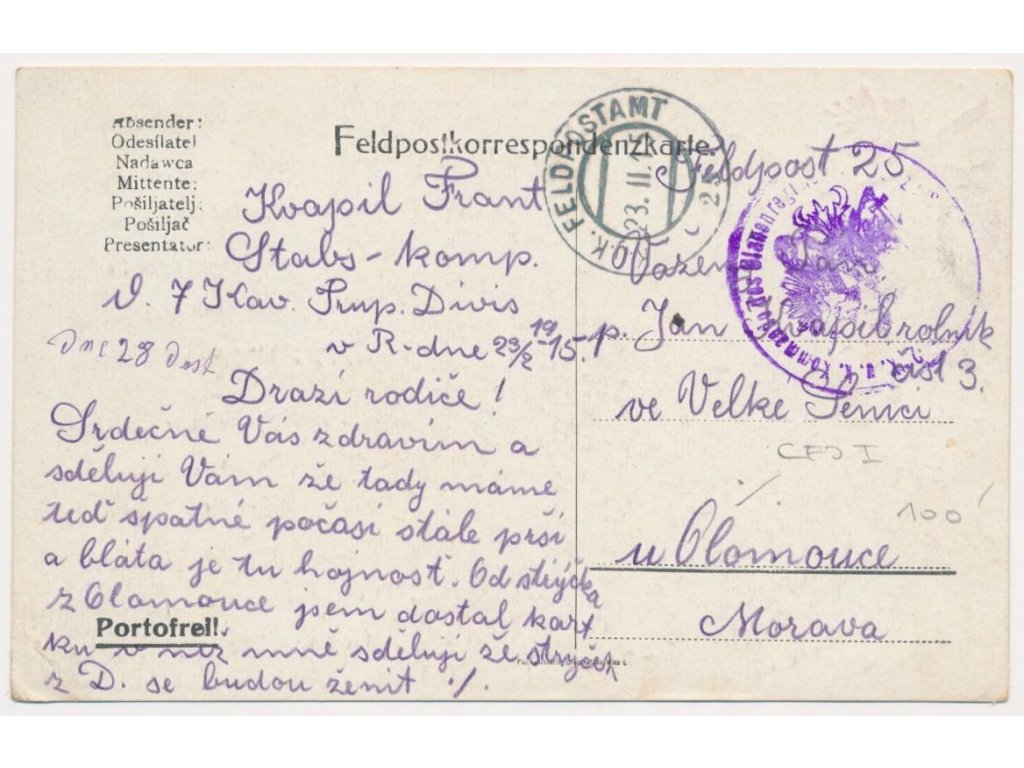 Absender:
Odesílatel
Nadawca
Mittente:
Pošiljatelj:
Pošiljač
Presentator:
Feldpostkorrespondenzkarte.
K.K. FELDPOSTAMT
23. II. 15
25
Feldpost 25
Kvapil Frant
Stabs-komp.
d. 7 Kav. Trup. Divis
v R-dne 23/2 1915.
Dne 28 dost
Drazí rodiče!
Srdečně Vás zdravím a
sděluji Vám že tady máme
teď spatné počasí stále prší
a bláta je tu hojnost. Od strýčka
z Olomouce jsem dostal kart
ku v něž mně sděluji že strýček
z D. se budou ženit ./.
Portofrei!
Vážený Pán
p. Jan Kvapil rolník
čís 3.
ve Velke Senici
CFJ I
100
u Olomouce
Morava